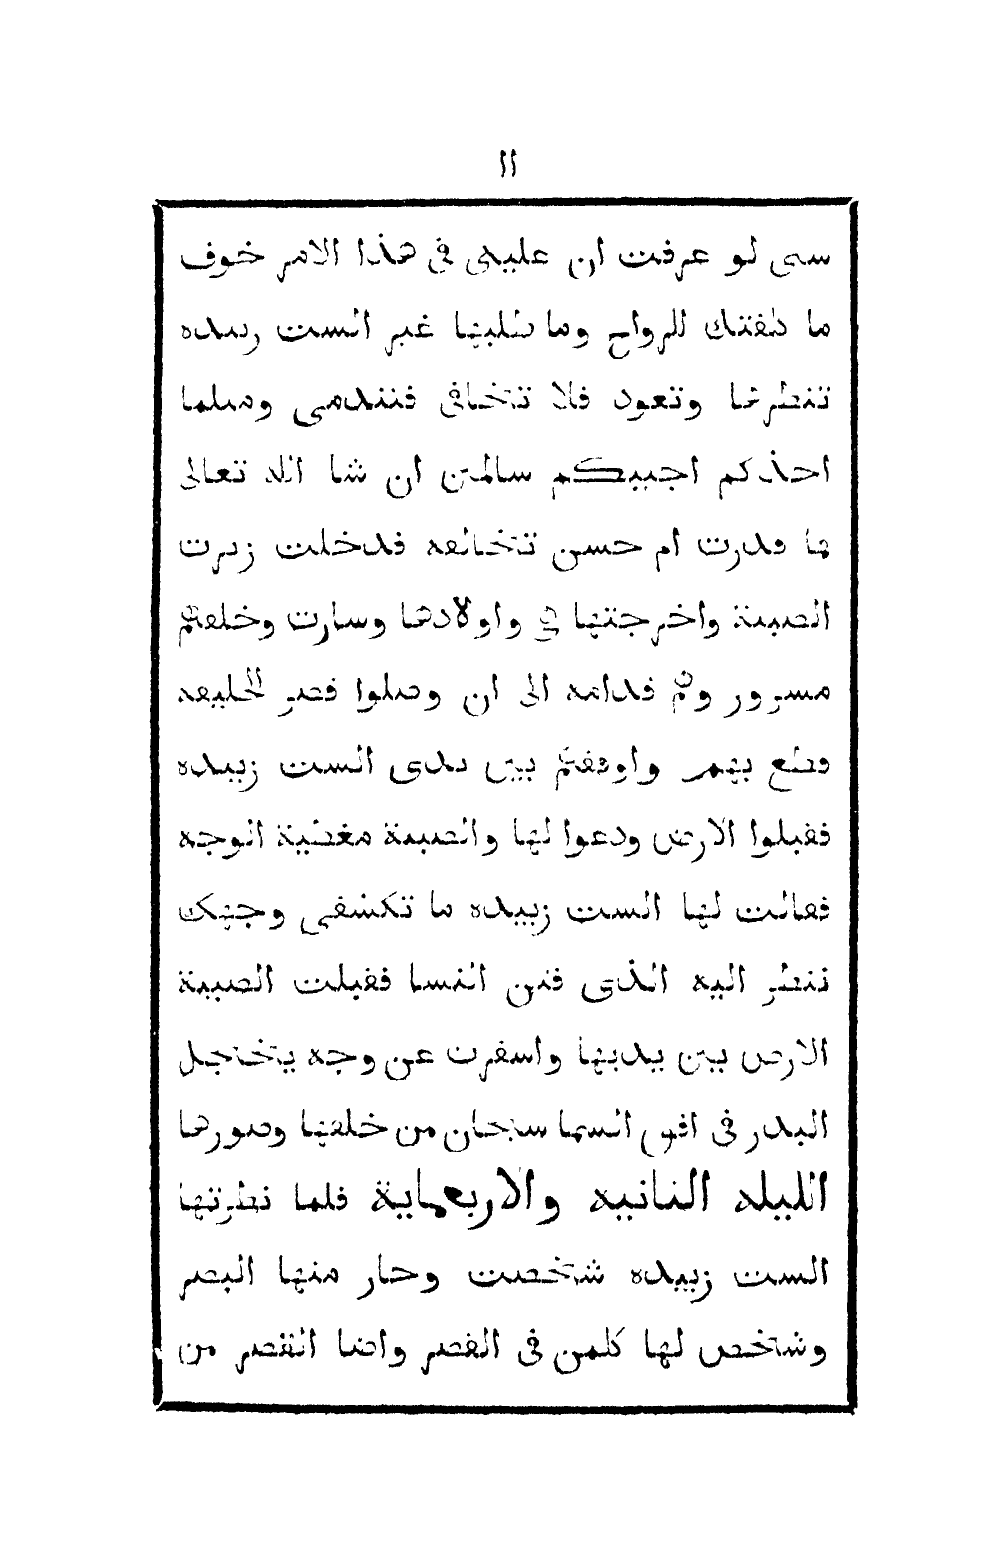 ١١
ستى لو عرفت ان عليكى فى هذا الامر خوف
ما كلفتك للرواح وما طلبها غير الست زبيده
تنظرها وتعود فلا تتخافى فتندمى ومثلما
اخذكم اجيبكم سالمين ان شا الله تعالى
فما قدرت ام حسن تتخالفه فدخلت زيرت
الصبية واخرجتها هى واولادها وسارت وخلفهم
مسرور وهم قدامه الى ان وصلوا قصر الخليفه
فطلع بهم واوقفهم بين يدى الست زبيده
فقبلوا الارض ودعوا لها والصبية مغطية الوجه
فقالت لها الست زبيده ما تكشفى وجهك
ننظر اليه الذى فتن النسا فقبلت الصبية
الارض بين يديها واسفرت عن وجه يتخجل
البدر فى افق السما سبحان من خلقها وصورها
الليله الثانيه والاربعماية فلما نظرتها
الست زبيده شتخصت وحار منها البصر
وشتخص لها كلمن فى القصر واضا القصر من